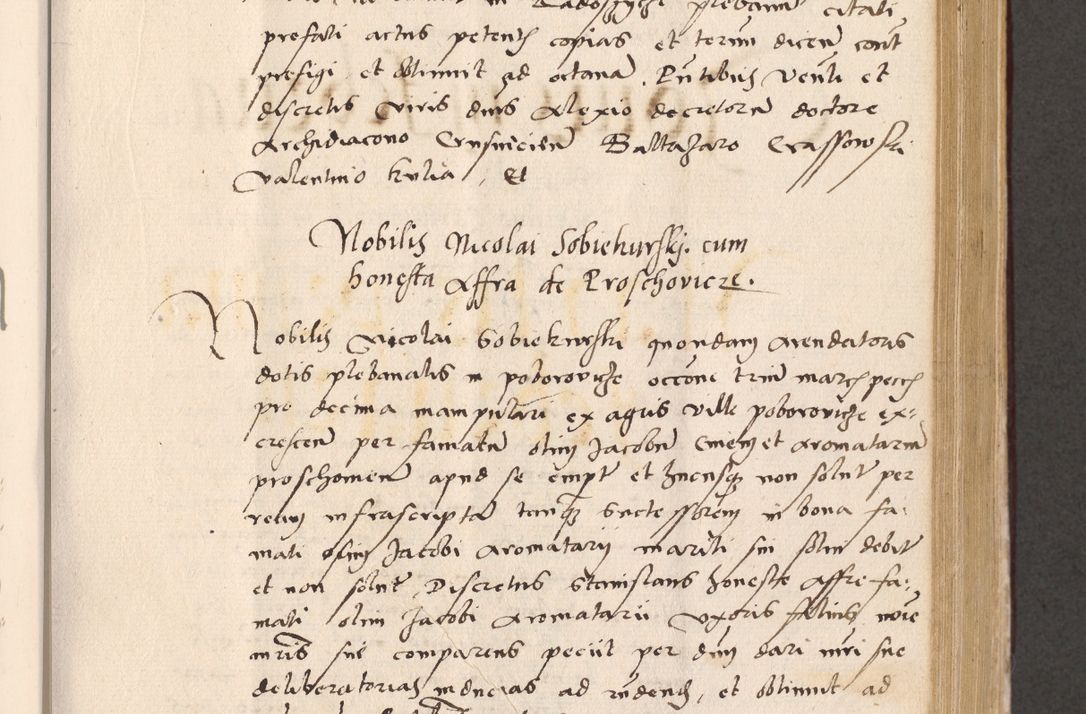 plebanum citati
prefati actus petentis copias et terminum dicendi cont
prefigi et obtinuit ad octavam Pntibus Venli et
discretis viris dnis Alexio decretorum doctore
Archidiacono Crusvicien Baltazaro Crassowski
Valentino Kulia, et
Nobilis Nicolai Sobiekurskij. cum
honesta Affra de Proschovicze.
Nobilis Nicolai Sobiekurski quondam Arendatoris
dotis plebanalis in poborovicze occone trium march pecch
pro decima manipulari ex agris ville poborovicze ex-
crescen per famatum olim Jacobum Civem et Aromatarium
proschovien apud se empt et non solut per
ream infrascriptam tanq Successorem in bona fa-
mati olim Jacobi Aromatarij mariti sui solvi debit
et non solut, Discretus Stanislaus honeste Affre fa-
mati olim Jacobi Aromatarii Uxoris filius noie
mris sue comparens peciit per dnm dari mri sue
deliberatorias inducias ad rndend, et obtinuit ad